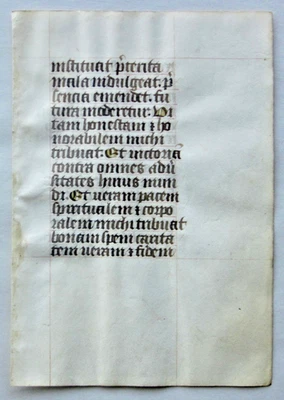 instituat p̄terita
mala indulgeat: p̄
sencia emendet. fu
tura moderetur. Vi
tam honestam ⁊ ho
norabilem michi
tribuat. Et victoriā
contra omnes adū
sitates huius mun
di. Et veram pacem
spiritualem ⁊ corpo
ralem michi tribuat
bonam spem carita
tem veram ⁊ fidem